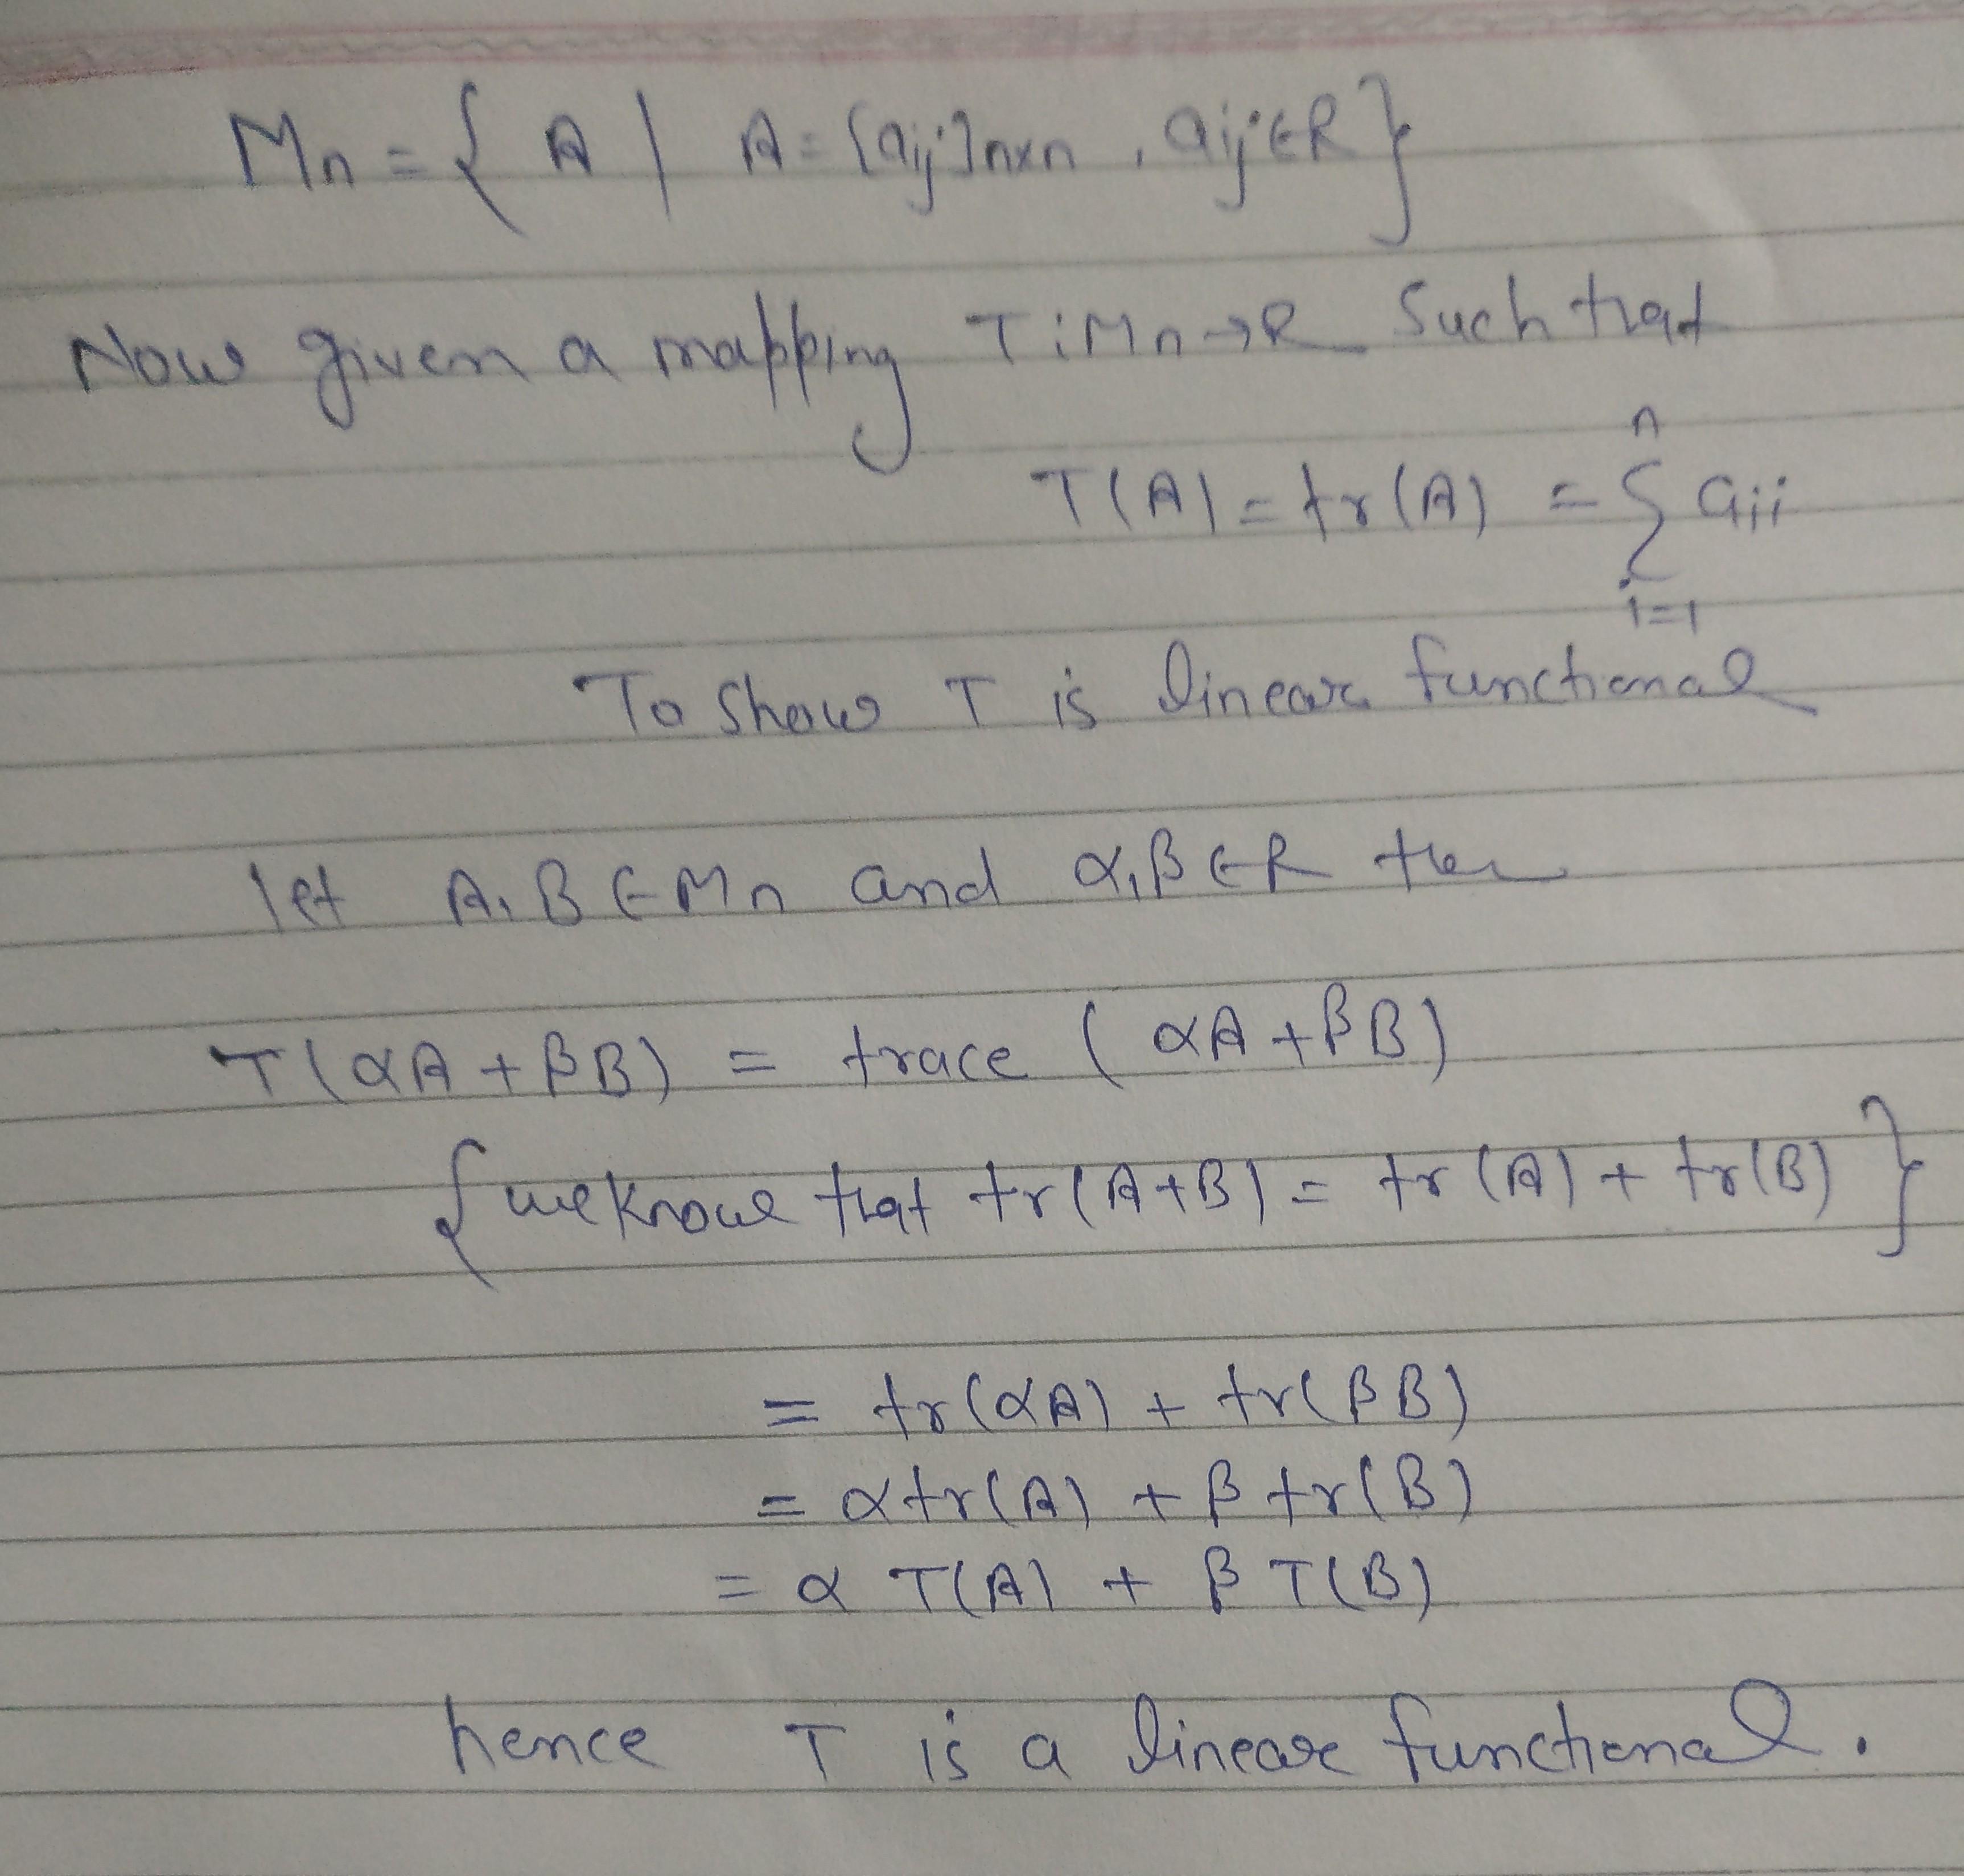 Mn = { A | A = [aij]nxn , aij ∈ R }
Now given a mapping T : Mn → R Such that
T(A) = tr(A) = n∑i=1 aii
To Show T is linear functional
let A, B ∈ Mn and α, β ∈ R then
T(αA + βB) = trace ( αA + βB )
{ we know that tr(A+B) = tr(A) + tr(B) }
= tr(αA) + tr(βB)
= α tr(A) + β tr(B)
= α T(A) + β T(B)
hence T is a linear functional.